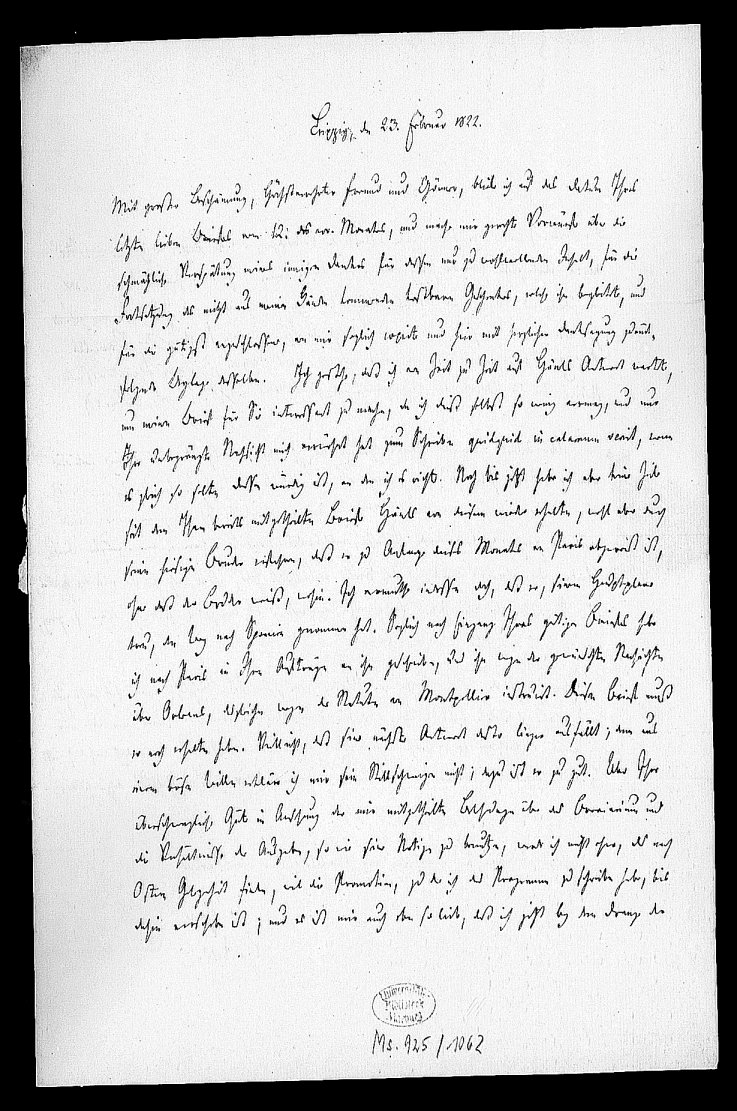 Leipzig, den 23. Februar 1822.
Mit großer Beschämung, Höchstverehrter Freund und Gönner, blick ich auf das Datum Ihres
letzten lieben Briefes vom 12: des vor. Monates, und mache mir gerechte Vorwürfe über die
schmähliche Verspätung meines innigen Dankes für dessen nur zu wohlwollenden Inhalt, für die
Fortsetzung des nicht aus meinen Händen kommenden kostbaren Geschenkes, welche ihn begleitete, und
für die gütigst angeschlossene, von mir sogleich und hier mit herzlicher Danksagung zurück-
folgende Beylage desselben. Ich gestehe, daß ich von Zeit zu Zeit auf Hänels Antwort wartete,
um meinen Brief für Sie interessant zu machen, da ich dieß selbst so wenig vermag, und nur
Ihre unbegränzte Nachsicht mich verwöhnt hat zum Schreiben quidquid in calamum venit, wenn
es gleich so selten dessen würdig ist, an den ich es richte. Noch bis jetzt habe ich aber keine Zeile
seit dem Ihnen bereits mitgetheilten Briefe Hänels von diesem wieder erhalten, wohl aber durch
seinen hiesigen Bruder erfahren, daß er zu Anfange dieses Monates von Paris abgereist ist,
ohne daß der Bruder weiß, wohin. Ich vermuthe indessen doch, daß er, seinem Hauptplane
treu, den Weg nach Spanien genommen hat. Sogleich nach Eingang Ihres gütigen Briefes habe
ich nach Paris in Ihren Aufträgen an ihn geschrieben, und ihn wegen der gewünschten Nachrichten
über Orleans, desgleichen wegen der Statuten von Montpellier instruirt. Diesen Brief muß
er noch erhalten haben. Vielleicht, daß seine nächste Antwort desto länger ausfällt; denn aus
einem bösen Willen erkläre ich mir sein Stillschweigen nicht; dazu ist er zu gut. Über Ihre
überschwengliche Güte in Ansehung der mir mitgetheilten über das Breviarium und
die Verhältnisse der Ausgaben, so wie seine Notizen zu benutzen, werde ich nicht eher, als nach
Ostern Gelegenheit finden, weil die Promotion, zu der ich das Programm zu schreiben habe, bis
dahin verschoben ist; und es ist mir auch eben so lieb, daß ich jetzt bey dem Drange der
Universitäts-
Bibliothek
Marburg
Ms. 925/1062